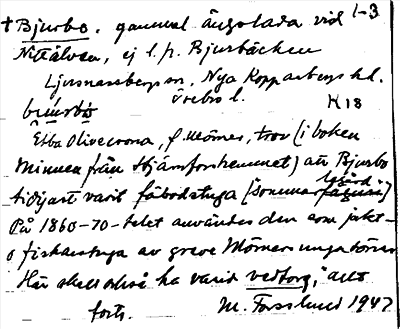 † Bjurbo. gammal ängslada vid 1-3
Nittälven, ej l. fr. Bjurbäcken
Ljusnarsbergs sn, Nya Kopparbergs hd.
Örebro l. K 18
Ebba Olivecrona, f. Mörner, tror (i boken
Minnen från Hjärnforshemmet) att Bjurbo
tidigast varit fäbodstuga (sommarfägård.)
På 1860-70-talet användes den som jakt-
o fiskestuga av greve Mörners unga
Här skall också ha varit vedtorg, allt
forts. M. Forslund 1947